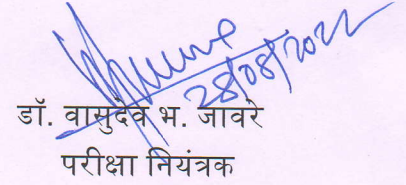 28/08/2022
डॉ. वासुदेव भ. जावरे
परीक्षा नियंत्रक